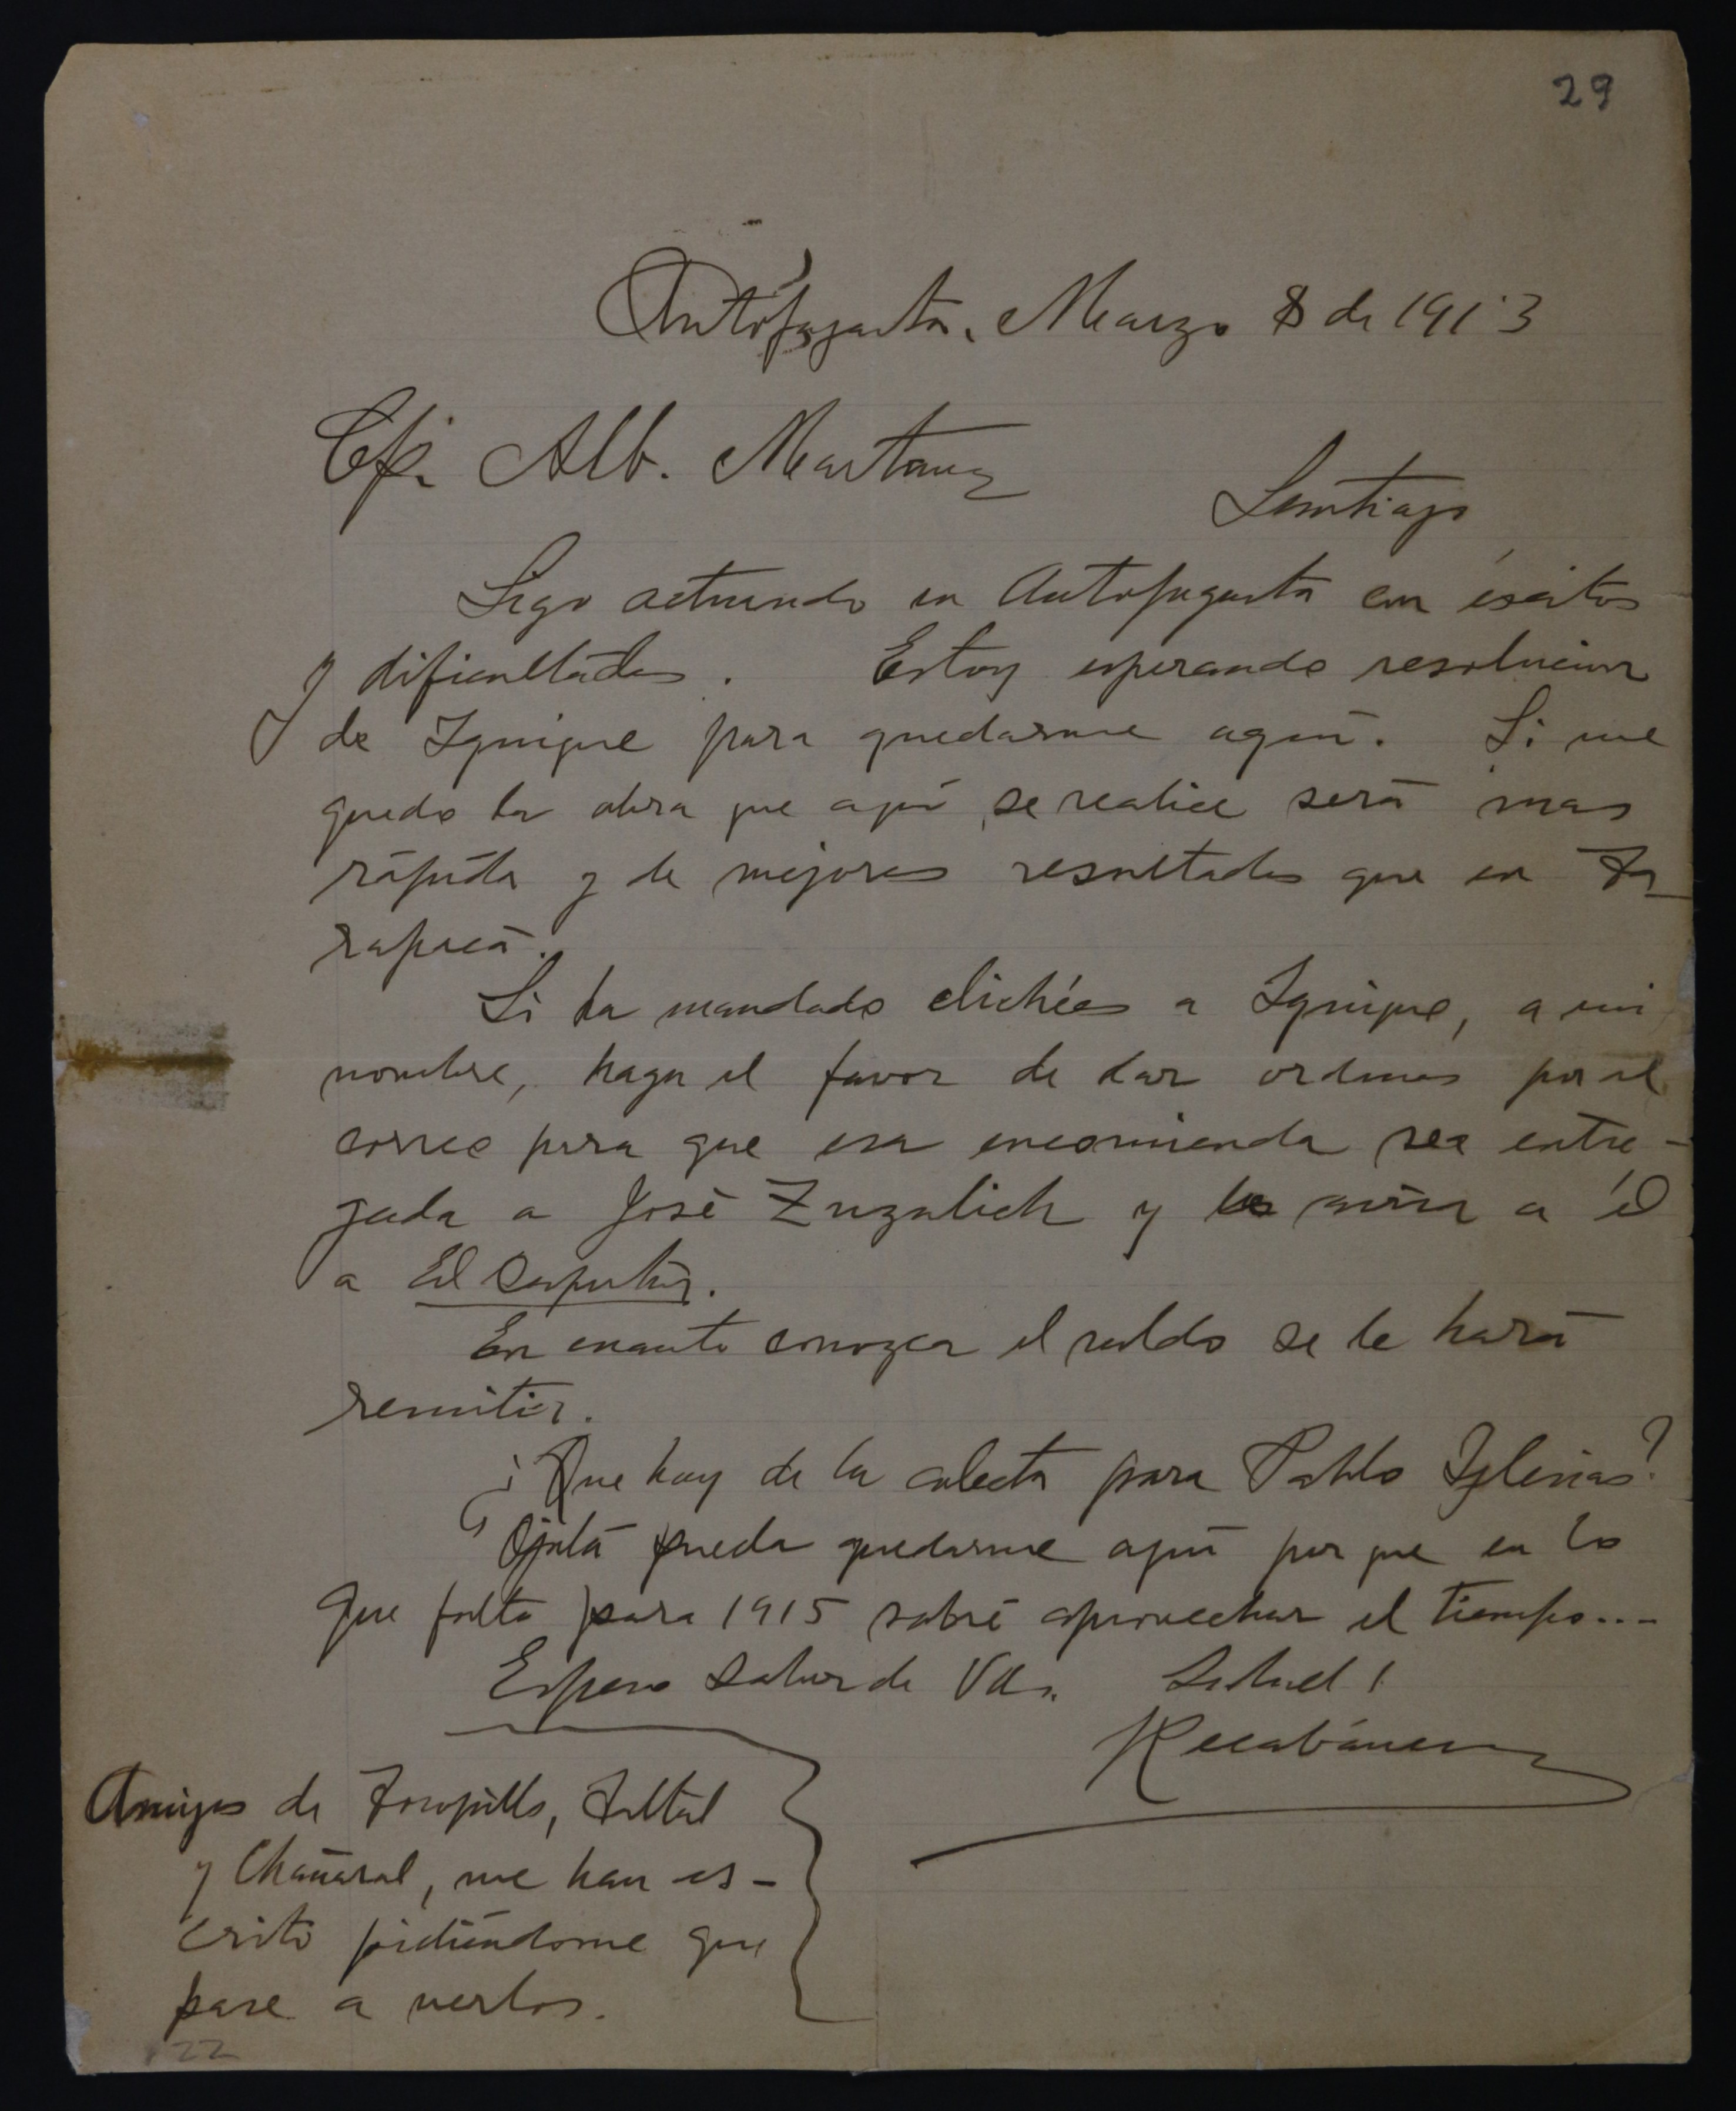 29
Antofagasta, Marzo 8 de 1913
Cp. Alb. Martinez
Santiago
Sigo actuando en Antofagasta con éxitos
y dificultades. Estoy esperando resolucion
de Iquique para quedarme aquí. Si me
quedo la obra que aquí se realice será mas
rápida y de mejores resultados que en Ta-
rapacá.
Si ha mandado clichées a Iquique, a mi
nombre, haga el favor de dar ordenes por el
correo para que esa encomienda sea entre-
gada a José Zuzulich y a él
a El Despertar.
En cuanto conozca el saldo se le hará
remitir.
¿Que hay de la colecta para Pablo Iglesias?
Ojalá pueda quedarme aquí por que en lo
que falta para 1915 sabré aprovechar el tiempo...
Espero saber de Vds. Salud!
Recabárren
Amigos de Tocopilla, Taltal
y Chañaral, me han es-
crito pidiéndome que
pase a verlos.
22